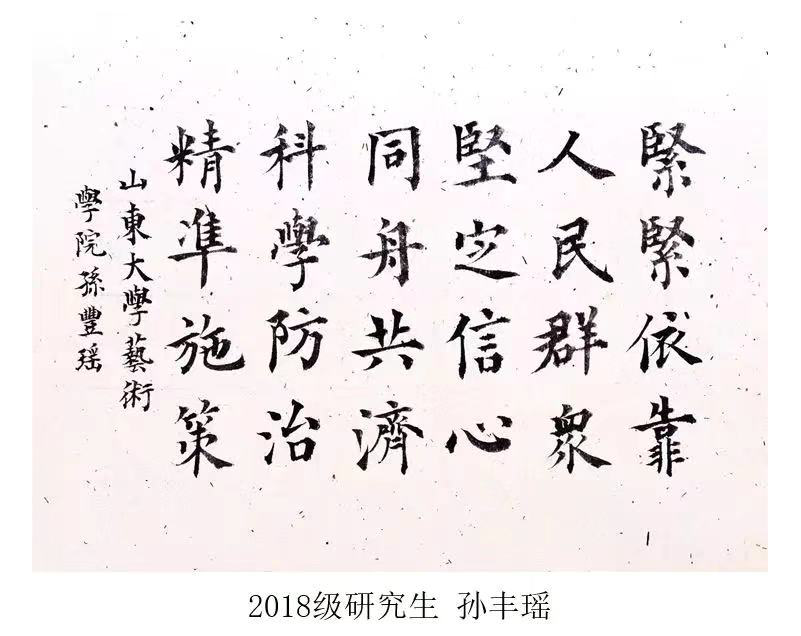 緊緊依靠
人民群衆
堅定信心
同舟共濟
科學防治
精準施策
山東大學藝術
學院孫豐瑶
2018级研究生 孙丰瑶